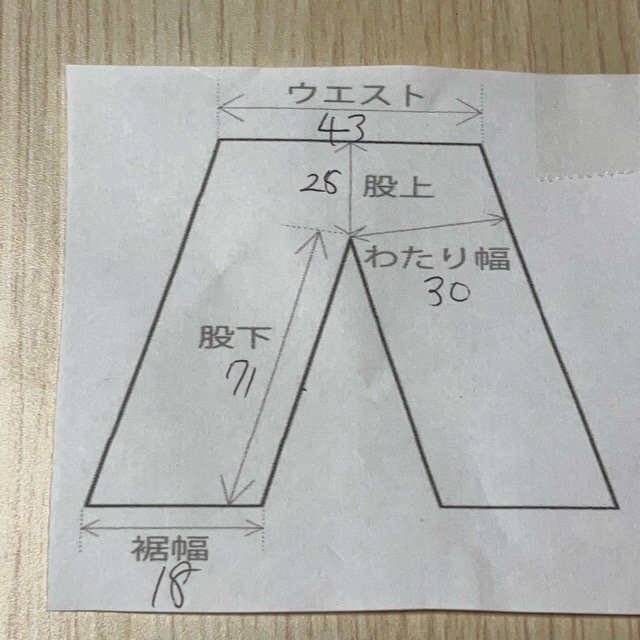 ウエスト
43
28 股上
わたり幅
30
股下
71
裾幅
18